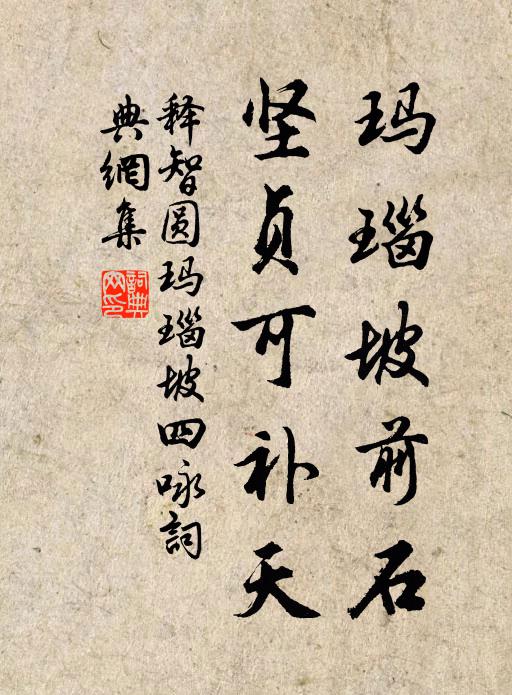 玛瑙坡前石
坚贞可补天
释智圆玛瑙坡四咏詞
典網集
詞典
网印